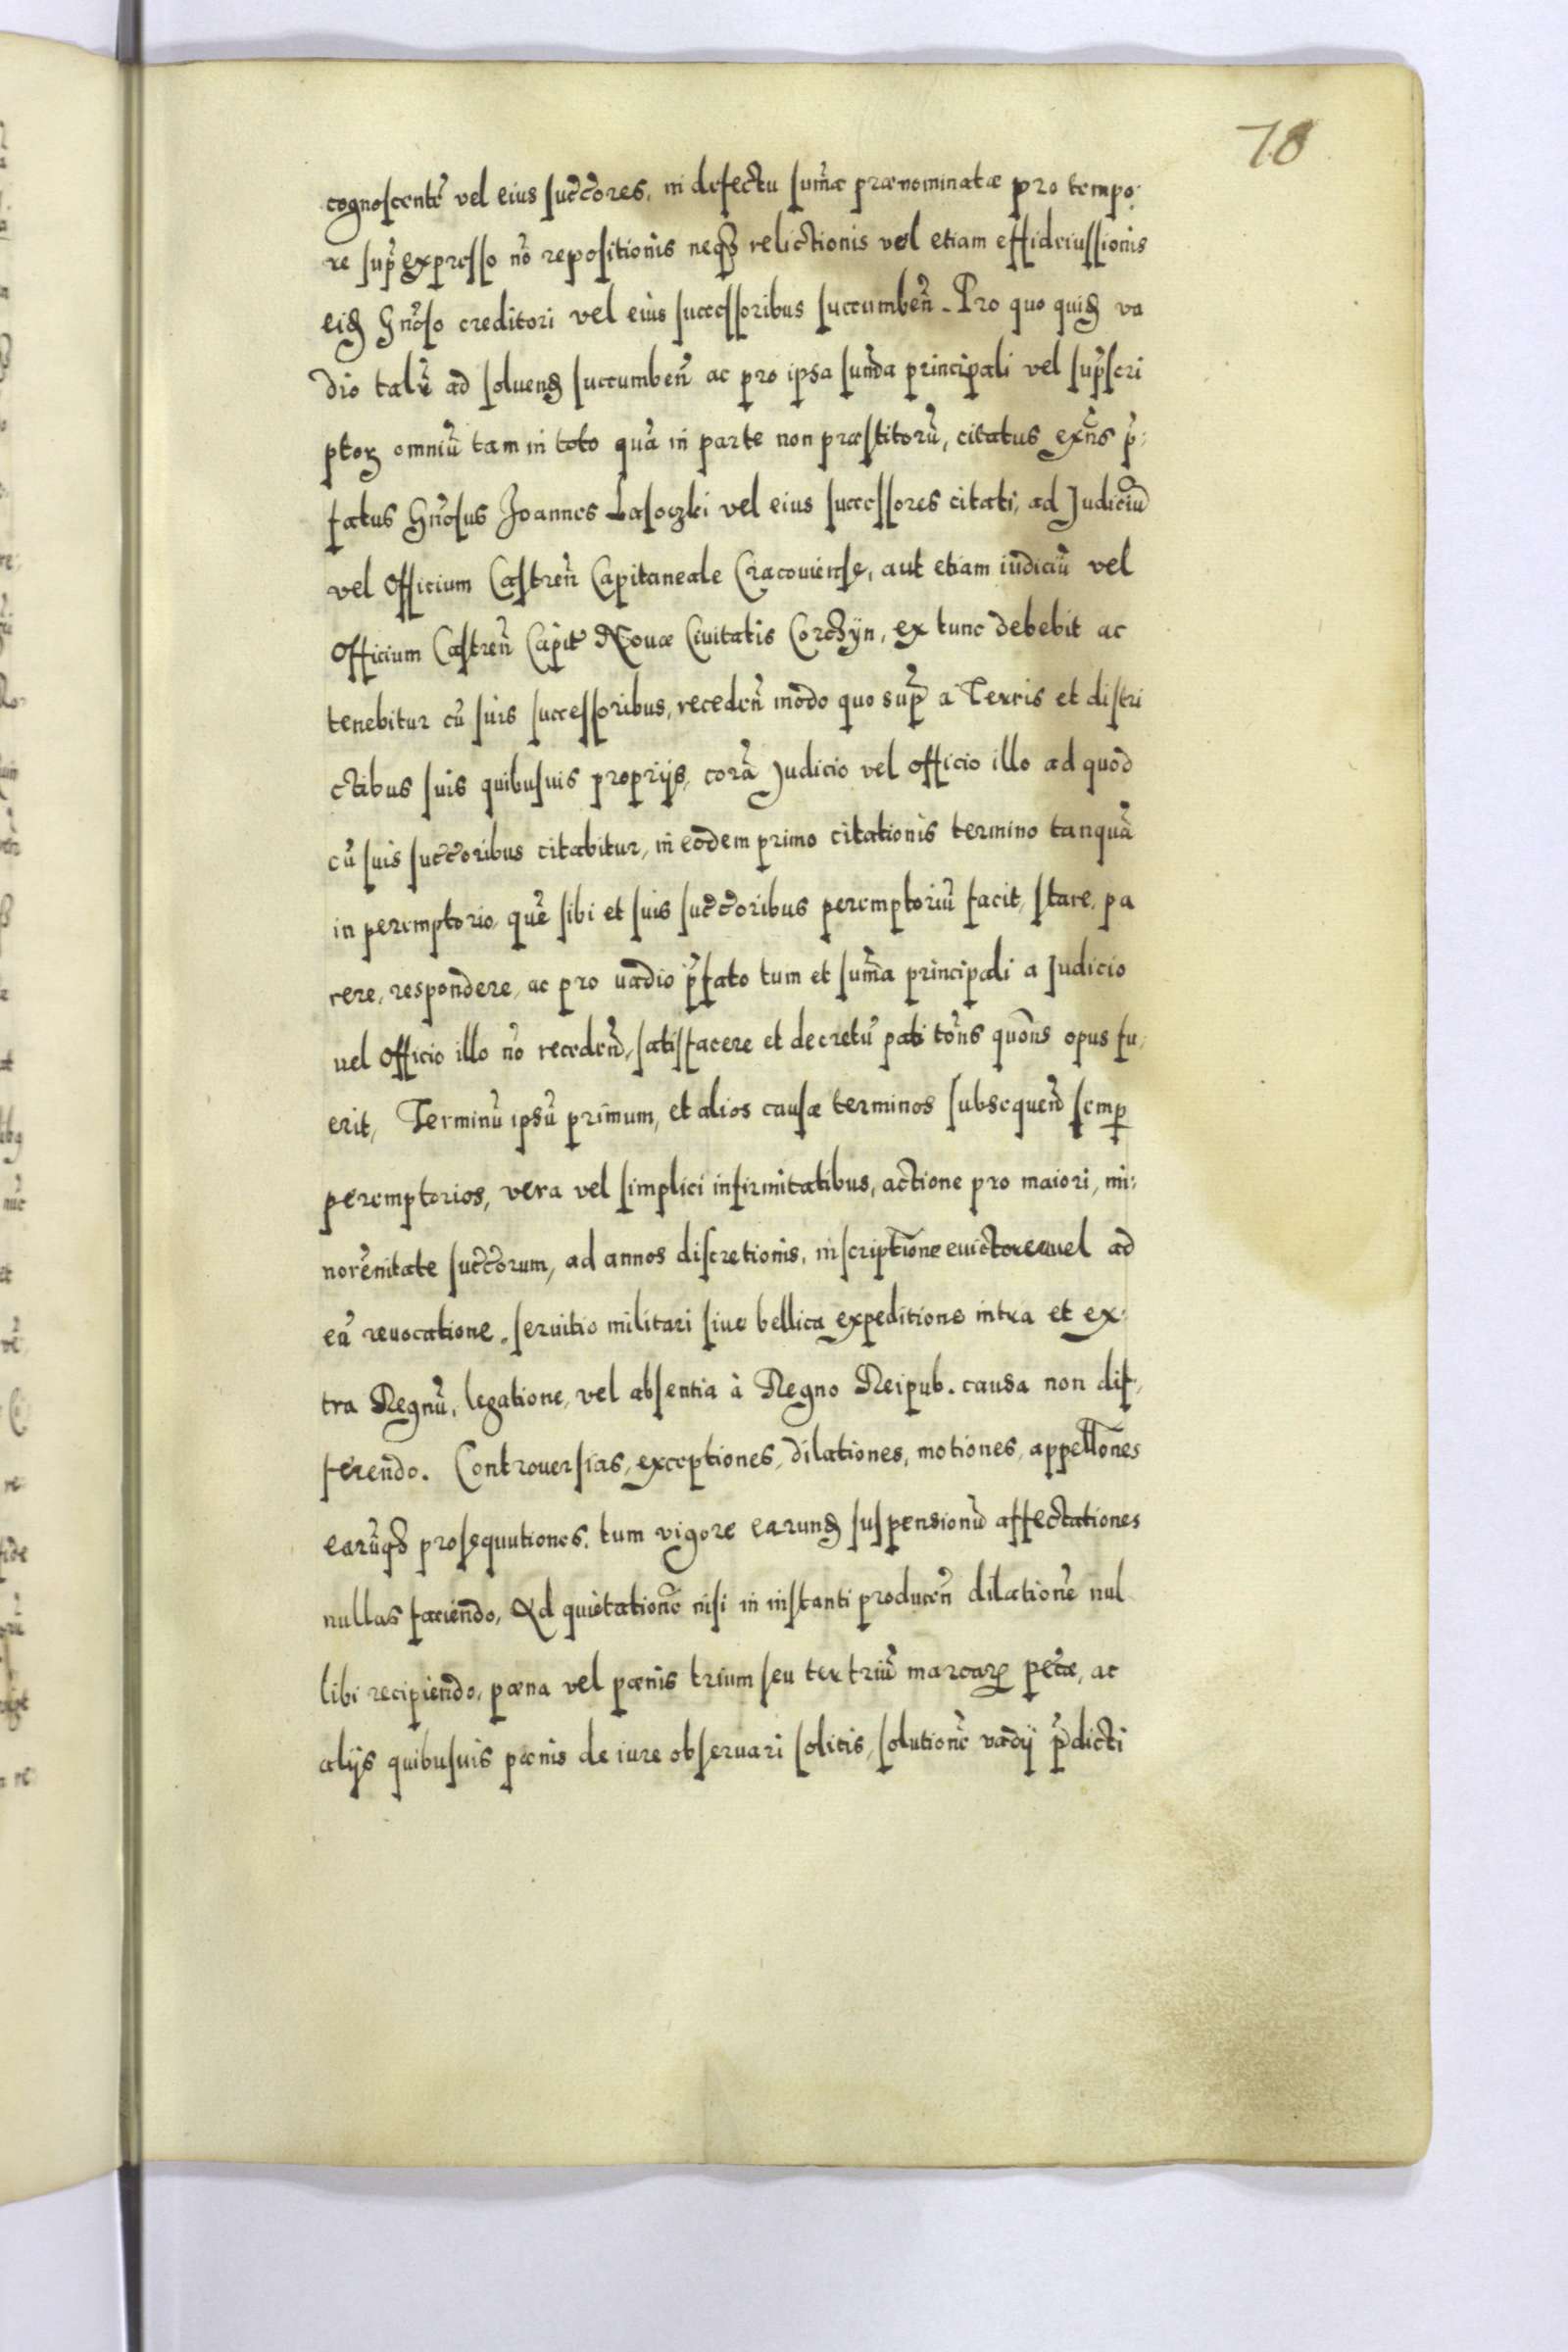 78
cognoscentē vel eius succ̄ores, in defectu sum̄æ prænominatæ pro tempo⸗
re sup̄ expresso nō repositionis neqз relictionis vel etiam effideiussionis
eid Gn̄oso creditori vel eius successoribus succumben̄. Pro quo quid va
dio talī ad soluend succumben̄ ac pro ipsa sum̄a principali vel sup̄scri
ptoꝝ omniū tam in toto quā in parte non præstitorū, citatus exn̄s p̄⸗
fatus Gn̄osus Joannes Lasoczki vel eius successores citati, ad Judiciū
vel Officium Castren̄ Capitaneale Cracouiense, aut etiam iudiciū vel
Officium Castren̄ Capit̄ Nouæ Ciuitatis Corczÿn, ex tunc debebit ac
tenebitur cū suis successoribus, receden̄ modo quo sup̄ a Terris et distri
ctibus suis quibusuis proprijs, corā Judicio vel officio illo ad quod
cū suis succ̄oribus citabitur, in eodem primo citationis termino tanquā
in peremptorio, quē sibi et suis succ̄oribus peremptoriū facit, stare, pa
rere, respondere, ac pro uadio p̄fato tum et sum̄a principali a Judicio
uel Officio illo nō receden̄, satisfacere et decretū pati tōns quōns opus fu⸗
erit, Terminū ipsū primum, et alios causæ terminos subsequen̄ semꝑ
peremptorios, vera vel simplici infirmitatibus, actione pro maiori, mi⸗
norēnitate succ̄orum, ad annos discretionis, inscriptīone euictore uel ad
eū reuocatione, seruitio militari siue bellica expeditione intra et ex⸗
tra Regnū, legatione, vel absentia à Regno Reipub. causa non dif⸗
ferendo. Controuersias, exceptiones, dilationes, motiones, appellōnes
earūqз prosequutiones, tum vigore earund suspensionū affectationes
nullas faciendo, Ad quietationē nisi in instanti producen̄ dilationē nul
libi recipiendo, pæna vel pænis trium seu ter triū marcaꝝ pec̄æ, ac
alijs quibusuis pænis de iure obseruari solitis, solutionē vadij p̄dicti